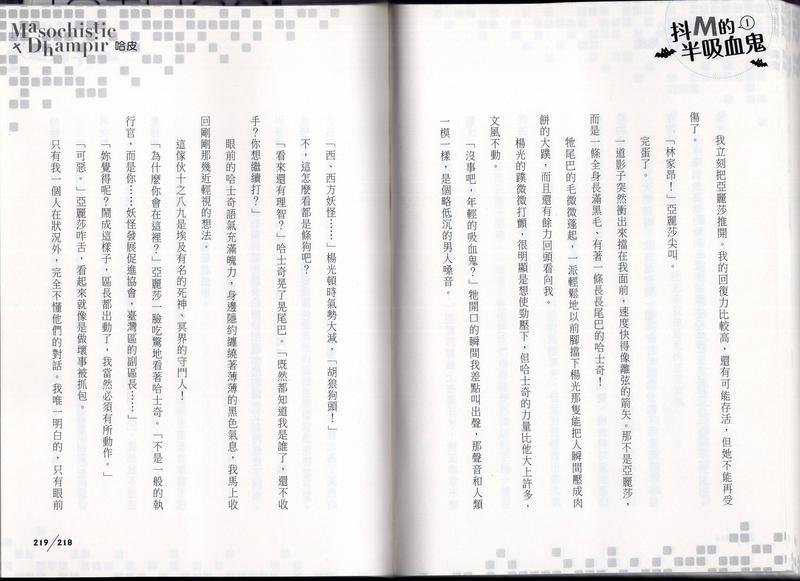 抖M的
半吸血鬼
1
我立刻把亞麗莎推開。我的回復力比較高，還有可能存活，但她不能再受
傷了。
「林家昂！」亞麗莎尖叫。
完蛋了。
一道影子突然衝出來擋在我面前，速度快得像離弦的箭矢。那不是亞麗莎，
而是一條全身長滿黑毛、有著一條長長尾巴的哈士奇！
牠尾巴的毛微微蓬起，一派輕鬆地以前腳擋下楊光那隻能把人瞬間壓成肉
餅的大蹼，而且還有餘力回頭看向我。
楊光的蹼微微打顫，很明顯是想使勁壓下，但哈士奇的力量比他大上許多，
文風不動。
「沒事吧，年輕的吸血鬼？」牠開口的瞬間我差點叫出聲，那聲音和人類
一模一樣，是個略低沉的男人嗓音。
Masochistic
Dhampir
哈皮
「西、西方妖怪……」楊光頓時氣勢大減，「胡狼狗頭！」
不，這怎麼看都是條狗吧？
「看來還有理智？」哈士奇晃了晃尾巴。「既然都知道我是誰了，還不收
手？你想繼續打？」
眼前的哈士奇語氣充滿魄力，身邊隱約纏繞著薄薄的黑色氣息，我馬上收
回剛剛那幾近輕視的想法。
這傢伙十之八九是埃及有名的死神、冥界的守門人！
「為什麼你會在這裡？」亞麗莎一臉吃驚地看著哈士奇。「不是一般的執
行官，而是你……妖怪發展促進協會，臺灣區的副區長……」
「妳覺得呢？鬧成這樣子，區長都出動了，我當然必須有所動作。」
「可惡。」亞麗莎咋舌，看起來就像是做壞事被抓包。
只有我一個人在狀況外，完全不懂他們的對話。我唯一明白的，只有眼前
219/218